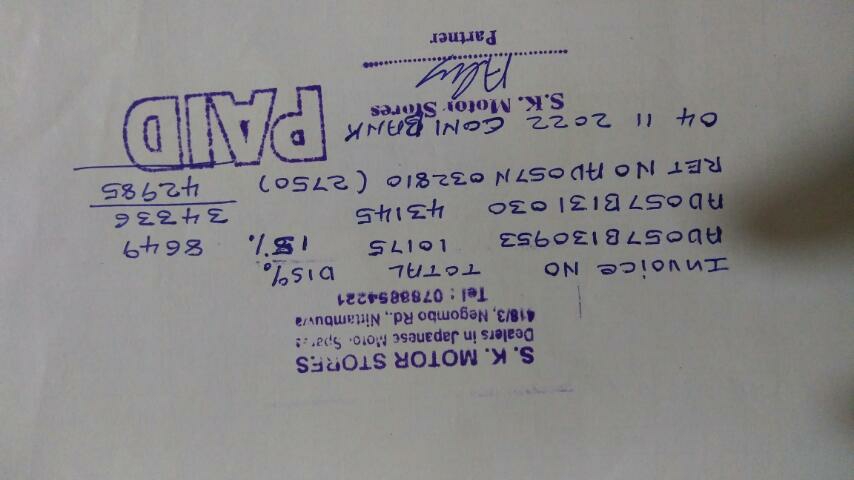 S. K. MOTOR STORES
Dealers in Japanese Motor Spares
418/3, Negombo Rd., Nittambuwa
Tel : 0788854221
INVOICE NO TOTAL DIS%
AD057B130953 10175 15% 8649
AD057B131030 43145 34336
RET NO AD057N032810 (2750) 42985
04 11 2022 COM BANK
PAID
S.K. Motor Stores
Partner